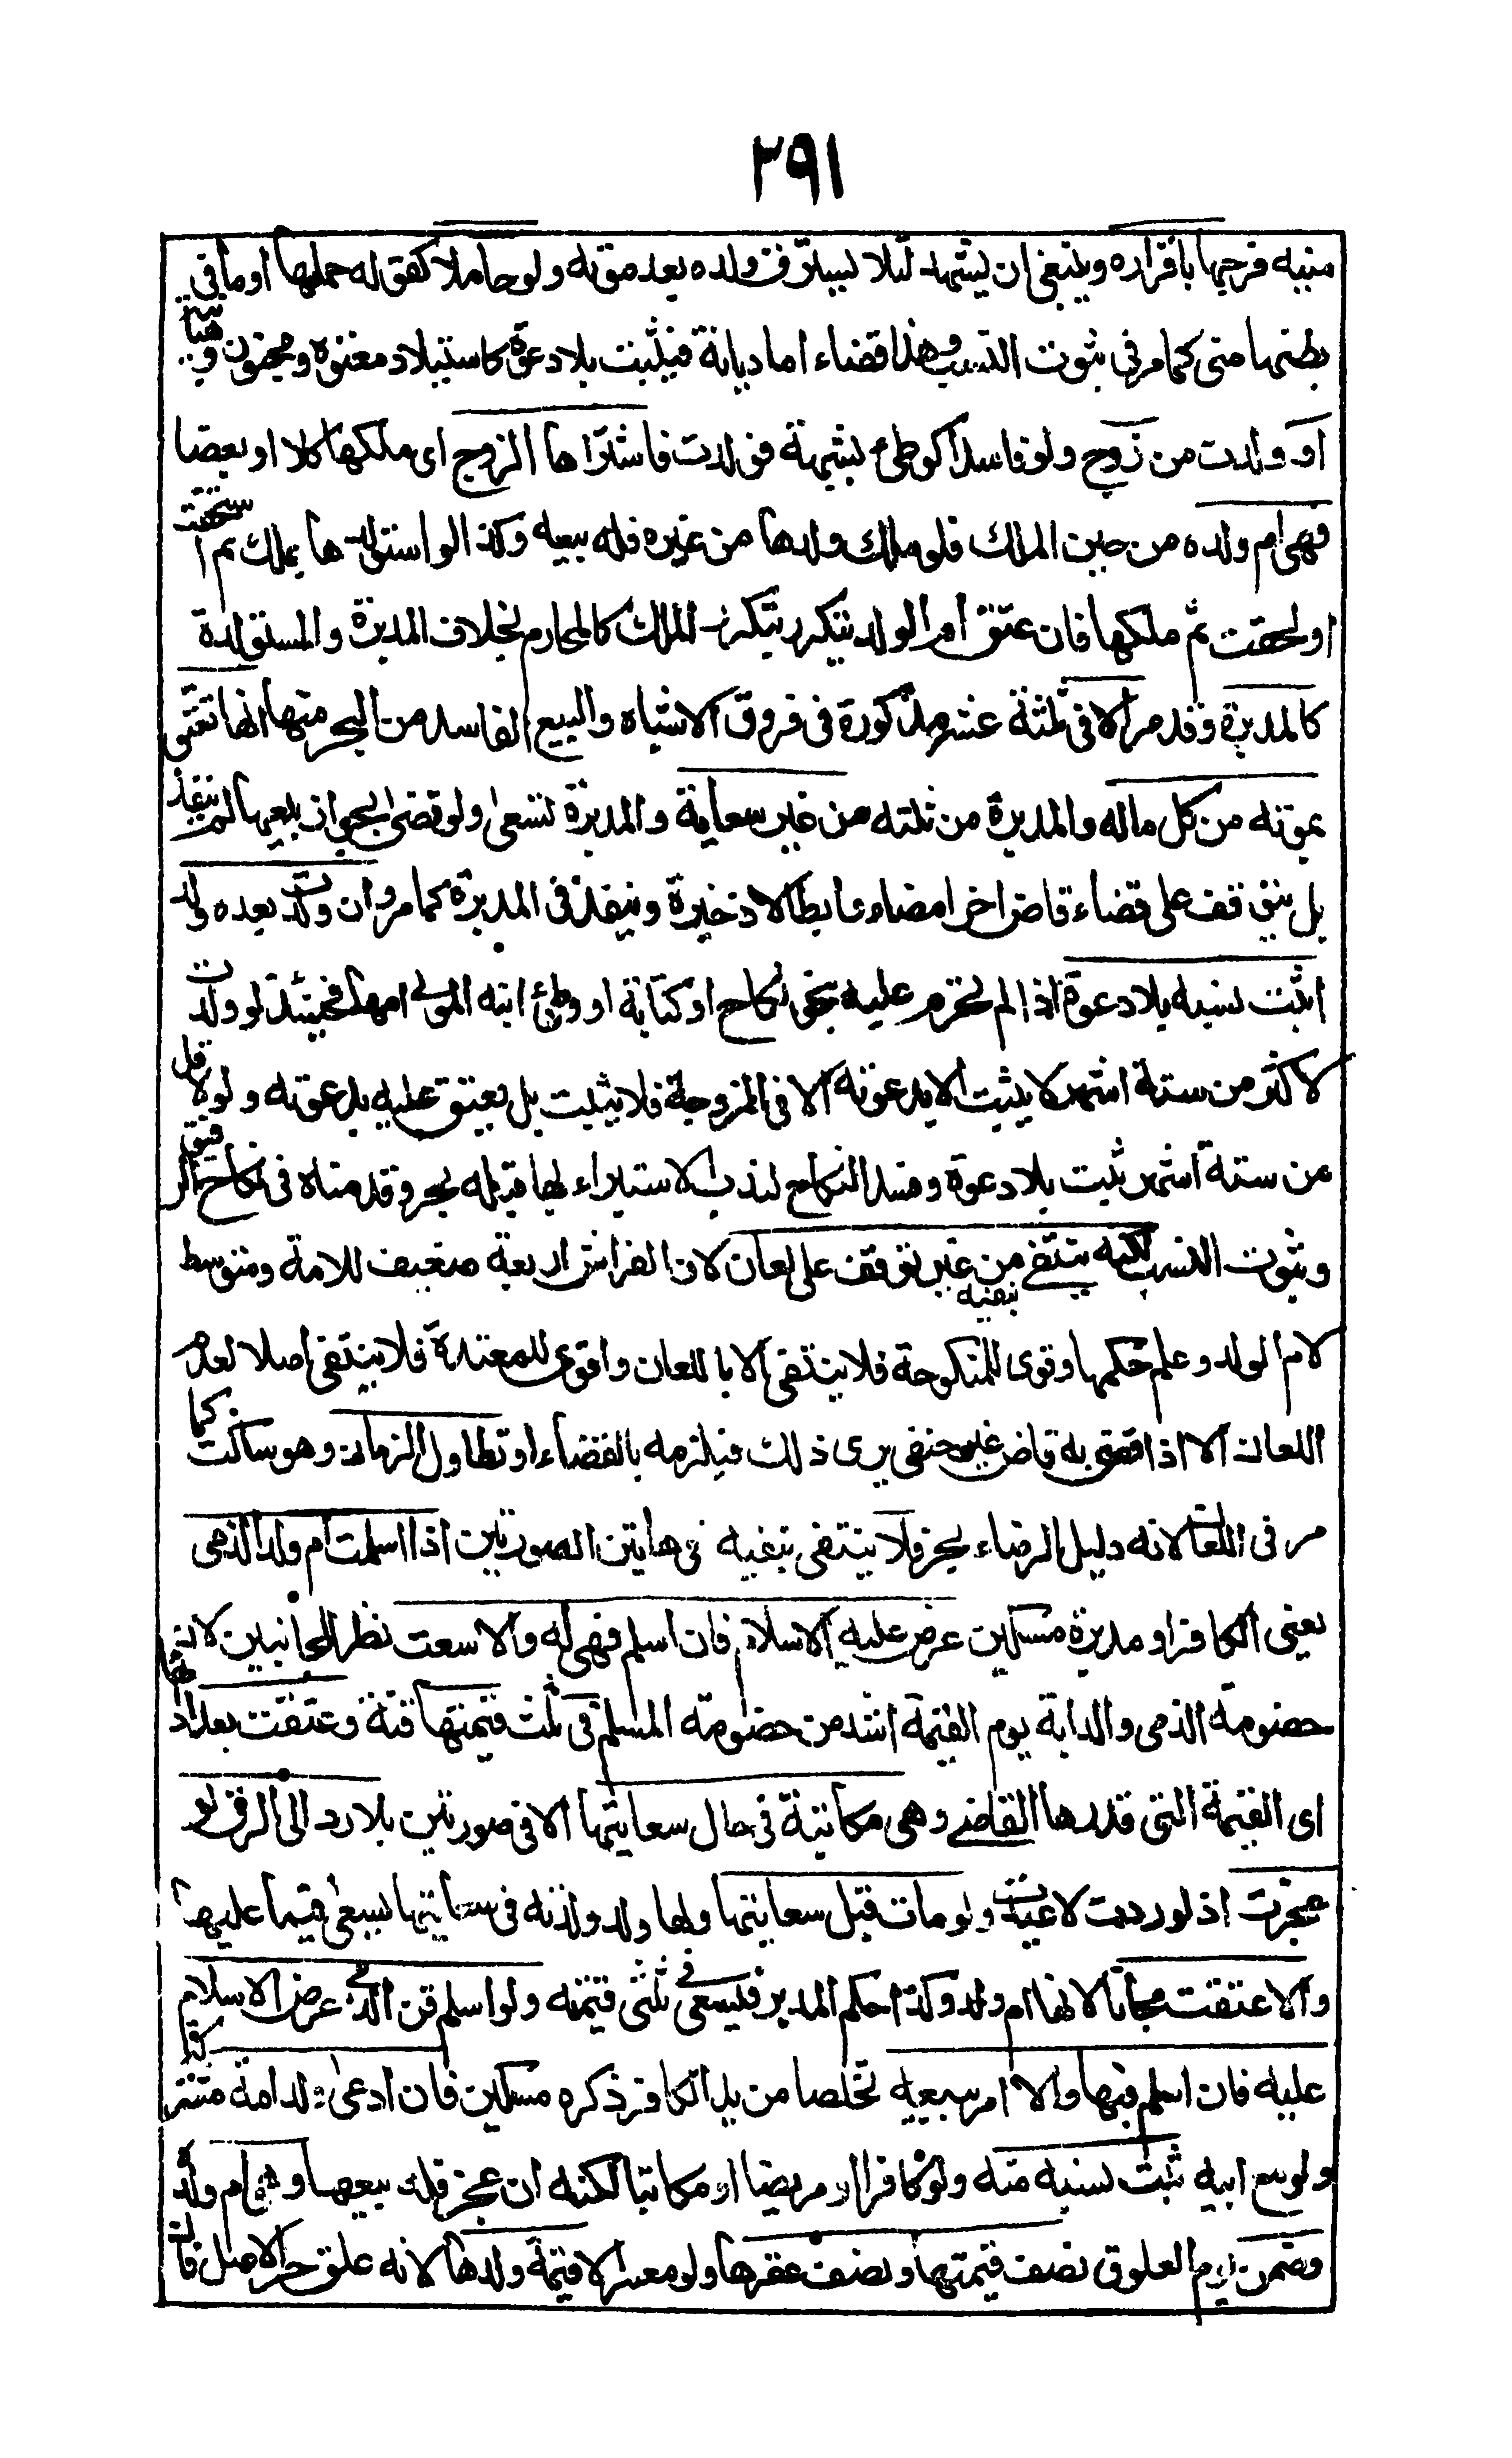 ٢٩١
منيه فرجها باقراره وينبغي ان يشهد لئلا يسترق ولده بعد موته ولو حاملا كقوله حملها او ما في
بطنها مني كما مر في ثبوت النسب وهذا قضاء اما ديانة فيثبت بلا دعوة كاستيلاد معتوه ومجنون وهبانية
او ولدت من زوج ولو فاسدا كوطئ بشبهة فولدت فاشتراها الزوج اى ملكها كلا او بعضا
فهي ام ولده من حين الملك فلو ملك ولدها من غيره فله بيعه وكذا لو استولدها بملك ثم استحقت
او لحقت ثم ملكها فان عتق ام الولد يتكرر بتكرر الملك كالمحارم بخلاف المدبرة والمستولدة
كالمدبرة وقد مر الا فى ثلثة عشر مذكورة فى فروق الاشباه والبيع الفاسد من البحر منها انها تعتق
بموته من كل ماله والمدبرة من ثلثه من غير سعاية والمدبرة تسعى ولو قضى بجواز بيعها لم ينفذ
بل يتوقف على قضاء قاض اخر امضاء وابطالا ذخيرة وينفذ فى المدبرة كما مر وان ولدت بعده ولدا
اثبت نسبه بلا دعوة اذا لم تحرم عليه بنحو نكاح او كتابة او وطئ ابنه المولى امها فحينئذ لو ولدت
لاكثر من ستة اشهر لا يثبت الا بدعوته الا فى المزوجة فلا يثبت بل يعتق عليه بدعوته ولو لاقل
من ستة اشهر ثبت بلا دعوة وفسد النكاح لندب الاستبراء لها قبله بحر وقدمناه فى نكاح الرقيق
وثبوت النسب لكنه ينتفي بنفيه من غير توقف على لعان لان الفراش اربعة ضعيف للامة ومتوسط
لام الولد وعلم حكمها وقوى للمنكوحة فلا ينتفى الا باللعان واقوى للمعتدة فلا ينتفى اصلا لعدم
اللعان الا اذا قضى به قاض غير حنفى يرى ذلك فيلزمه بالقضاء او تطاول الزمان وهو ساكت كما
مر فى اللعان لانه دليل الرضاء بحر فلا ينتفى بنفيه فى هاتين الصورتين اذا اسلمت ام ولد الذمى
يعنى الكافر او مدبرة مسكين عرض عليه الاسلام فان اسلم فهى له والا سعت نظرا للجانبين لان
خصومة الذمى والدابة يوم القيمة اشد من خصومة المسلم فى ثلث قيمتها قنة وعتقت بعد ادائها
اى القيمة التى قدرها القاضى وهى مكاتبة فى حال سعايتها الا فى صورتين بلا رد الى الرق لو
عجزت اذ لو ردت لاعيدت ولو مات قبل سعايتها ولها ولد ولدته فى سعايتها يسعى فيما عليها
والا عتقت مجانا لانها ام ولد وكذا حكم المدبر فيسعى فى ثلثى قيمته ولو اسلم قن الذمى عرض الاسلام
عليه فان اسلم فبها والا امر ببيعه تخلصا من يد الكافر ذكره مسكين فان ادعى ولد امة مشتركة
ولو مع ابيه ثبت نسبه منه ولو كافرا او مريضا او مكاتبا لكنه ان عجز فله بيعها وهى ام ولده
وضمن يوم العلوق نصف قيمتها ونصف عقرها ولو معسرا لا قيمة ولدها لانه علق حر الاصل فان